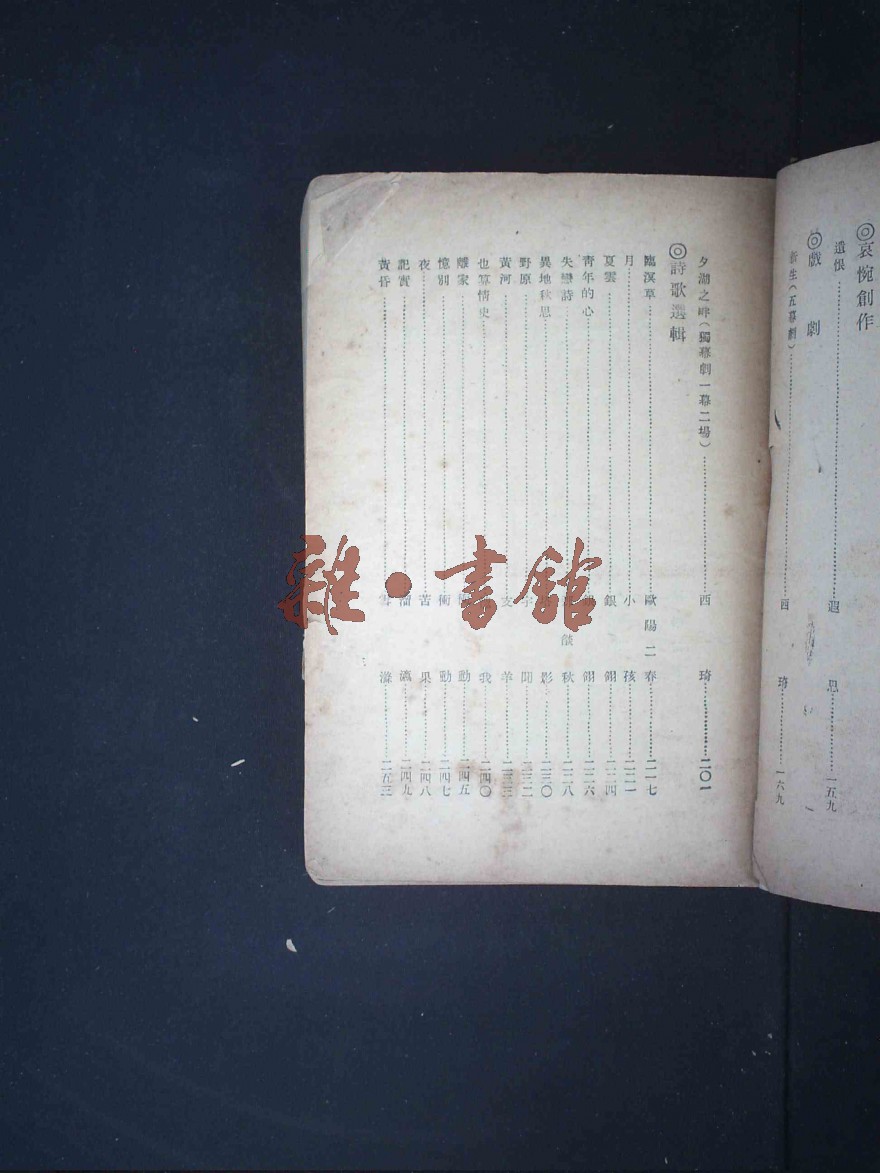 ◎哀惋創作
遺恨……遐思……一五九
◎戲劇
新生（五幕劇）……西琦……一六九
夕湖之畔（獨幕劇一幕二場）……西琦……二〇一
◎詩歌選輯
臨溟草……歐陽二春……二一七
月……小孩……二二一
夏雲……銀翎……二二四
青年的心……翎……二二六
失戀詩……燄秋……二二八
異地秋思……影……二三〇
野原……聞……二三二
黃河……支羊……二三三
也算情史……我……二四〇
離家……動……二四五
憶別……衝動……二四七
夜……苦果……二四八
記實……瀛……二四九
黃昏……二五三
雜·書館